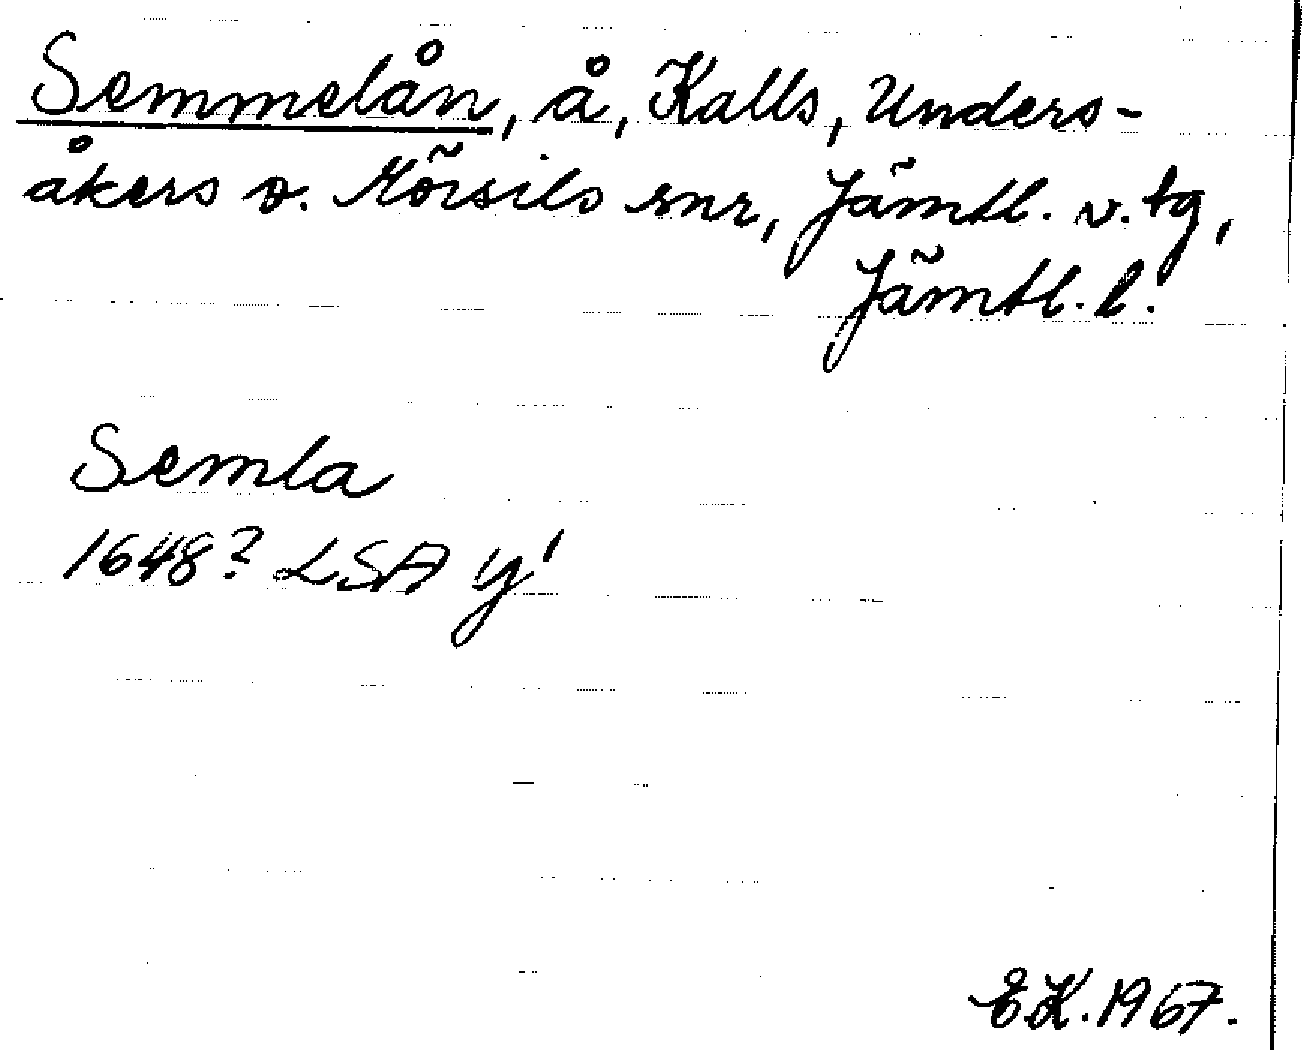 Semmelån, å, Kalls, Unders-
åkers o. Mörsils snr, Jämtl. v. tg,
Jämtl. l.
Semla
1648? LSA y'
E.K. 1967.